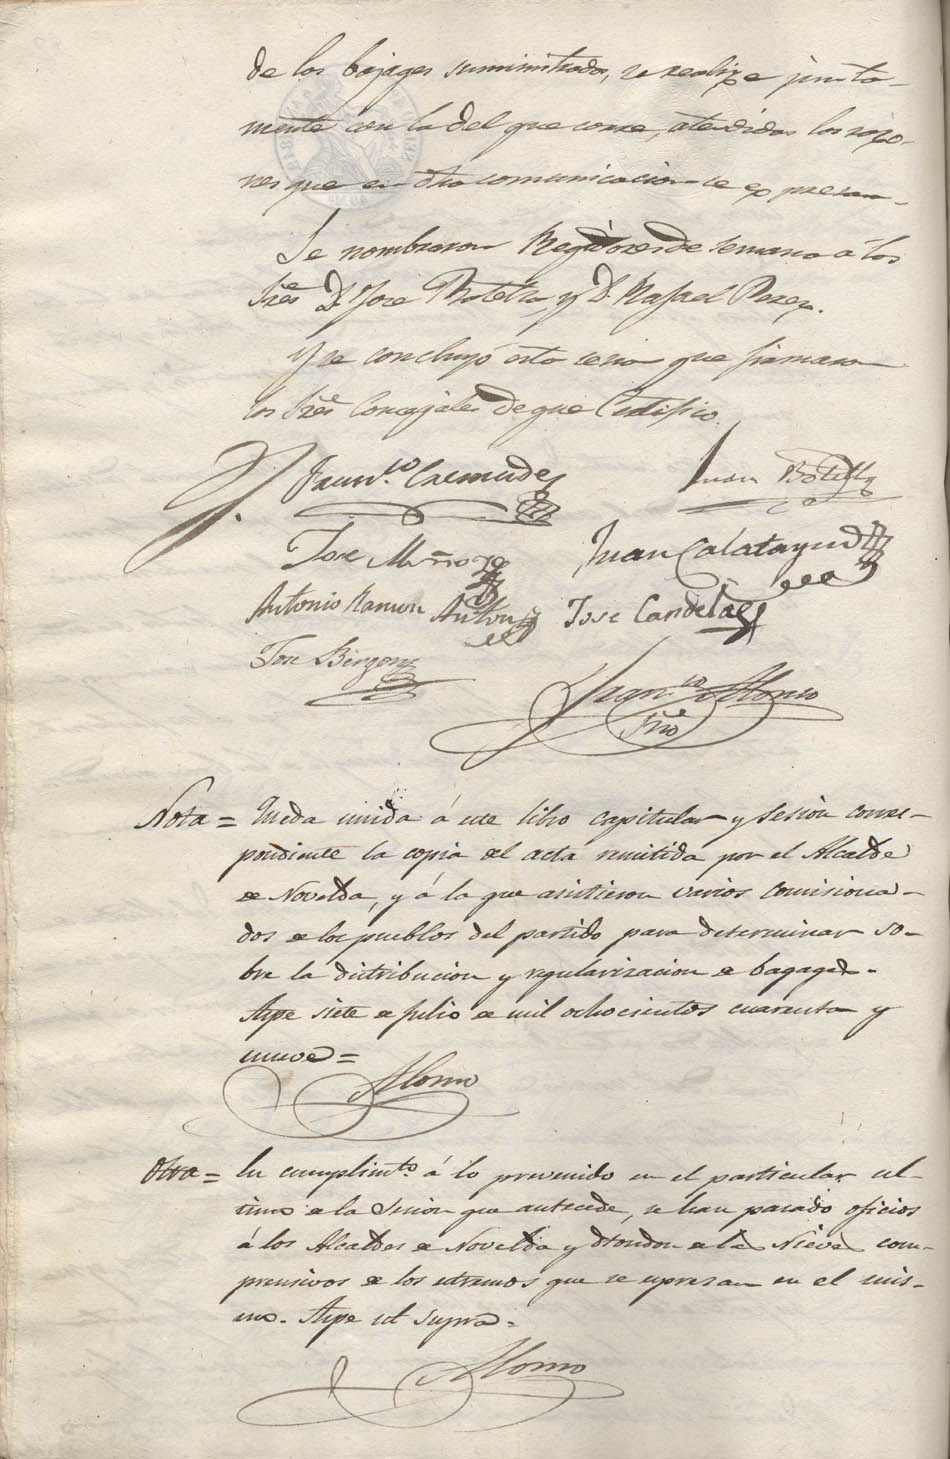 de los bajages suministrados, se realize junta-
mente con la del que corre, atendidas las razo-
nes que en dha comunicacion se expresan.
Se nombraron Regidores de semana á los
Sres D. Jose Botella y D. Rafael Perez.
Y se concluyó esta sesion que firmaron
los Sres Concejales de que Certifico.
Franco. Juan Botella
Jose Muñoz Juan Calatayud
Antonio Ramon Anton Jose Candela
Jose
Franco. Alonso
Srio
Nota = Queda unida á este libro capitular y sesion corres-
pondiente la copia del acta remitida por el Alcalde
de Novelda, y á la que asistieron varios comisiona-
dos de los pueblos del partido para determinar so-
bre la distribucion y regularizacion de bagages.
Aspe siete de Julio de mil ochocientos cuarenta y
nueve =
Alonso
Otra = En cumplimto á lo prevenido en el particular ul-
timo de la Sesion que antecede, se han pasado oficios
á los Alcaldes de Novelda y Hondon de las Nieves com-
prensivos de los estremos que se espresan en el mis-
mo. Aspe ut supra.
Alonso